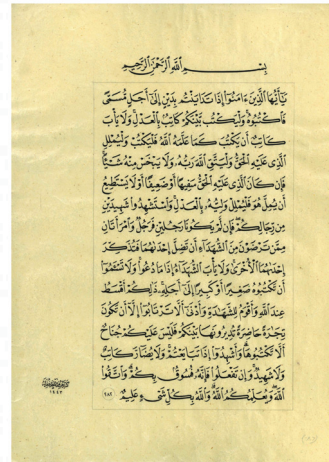 بِسْمِ اللَّهِ الرَّحْمَٰنِ الرَّحِيمِ
يَٰٓأَيُّهَا الَّذِينَ ءَامَنُوٓا۟ إِذَا تَدَايَنتُم بِدَيْنٍ إِلَىٰٓ أَجَلٍ مُّسَمًّى
فَاكْتُبُوهُ وَلْيَكْتُب بَّيْنَكُمْ كَاتِبٌۢ بِالْعَدْلِ وَلَا يَأْبَ
كَاتِبٌ أَن يَكْتُبَ كَمَا عَلَّمَهُ اللَّهُ فَلْيَكْتُبْ وَلْيُمْلِلِ
الَّذِى عَلَيْهِ الْحَقُّ وَلْيَتَّقِ اللَّهَ رَبَّهُۥ وَلَا يَبْخَسْ مِنْهُ شَيْـًٔا
فَإِن كَانَ الَّذِى عَلَيْهِ الْحَقُّ سَفِيهًا أَوْ ضَعِيفًا أَوْ لَا يَسْتَطِيعُ
أَن يُمِلَّ هُوَ فَلْيُمْلِلْ وَلِيُّهُۥ بِالْعَدْلِ وَاسْتَشْهِدُوا۟ شَهِيدَيْنِ
مِن رِّجَالِكُمْ فَإِن لَّمْ يَكُونَا رَجُلَيْنِ فَرَجُلٌ وَامْرَأَتَانِ
مِمَّن تَرْضَوْنَ مِنَ الشُّهَدَآءِ أَن تَضِلَّ إِحْدَىٰهُمَا فَتُذَكِّرَ
إِحْدَىٰهُمَا الْأُخْرَىٰ وَلَا يَأْبَ الشُّهَدَآءُ إِذَا مَا دُعُوا۟ وَلَا تَسْـَٔمُوٓا۟
أَن تَكْتُبُوهُ صَغِيرًا أَوْ كَبِيرًا إِلَىٰٓ أَجَلِهِۦ ذَٰلِكُمْ أَقْسَطُ
عِندَ اللَّهِ وَأَقْوَمُ لِلشَّهَٰدَةِ وَأَدْنَىٰٓ أَلَّا تَرْتَابُوٓا۟ إِلَّآ أَن تَكُونَ
تِجَٰرَةً حَاضِرَةً تُدِيرُونَهَا بَيْنَكُمْ فَلَيْسَ عَلَيْكُمْ جُنَاحٌ
أَلَّا تَكْتُبُوهَا وَأَشْهِدُوٓا۟ إِذَا تَبَايَعْتُمْ وَلَا يُضَآرَّ كَاتِبٌ
وَلَا شَهِيدٌ وَإِن تَفْعَلُوا۟ فَإِنَّهُۥ فُسُوقٌۢ بِكُمْ وَاتَّقُوا۟
اللَّهَ وَيُعَلِّمُكُمُ اللَّهُ وَاللَّهُ بِكُلِّ شَىْءٍ عَلِيمٌ ٢٨٢
١٤٤٢